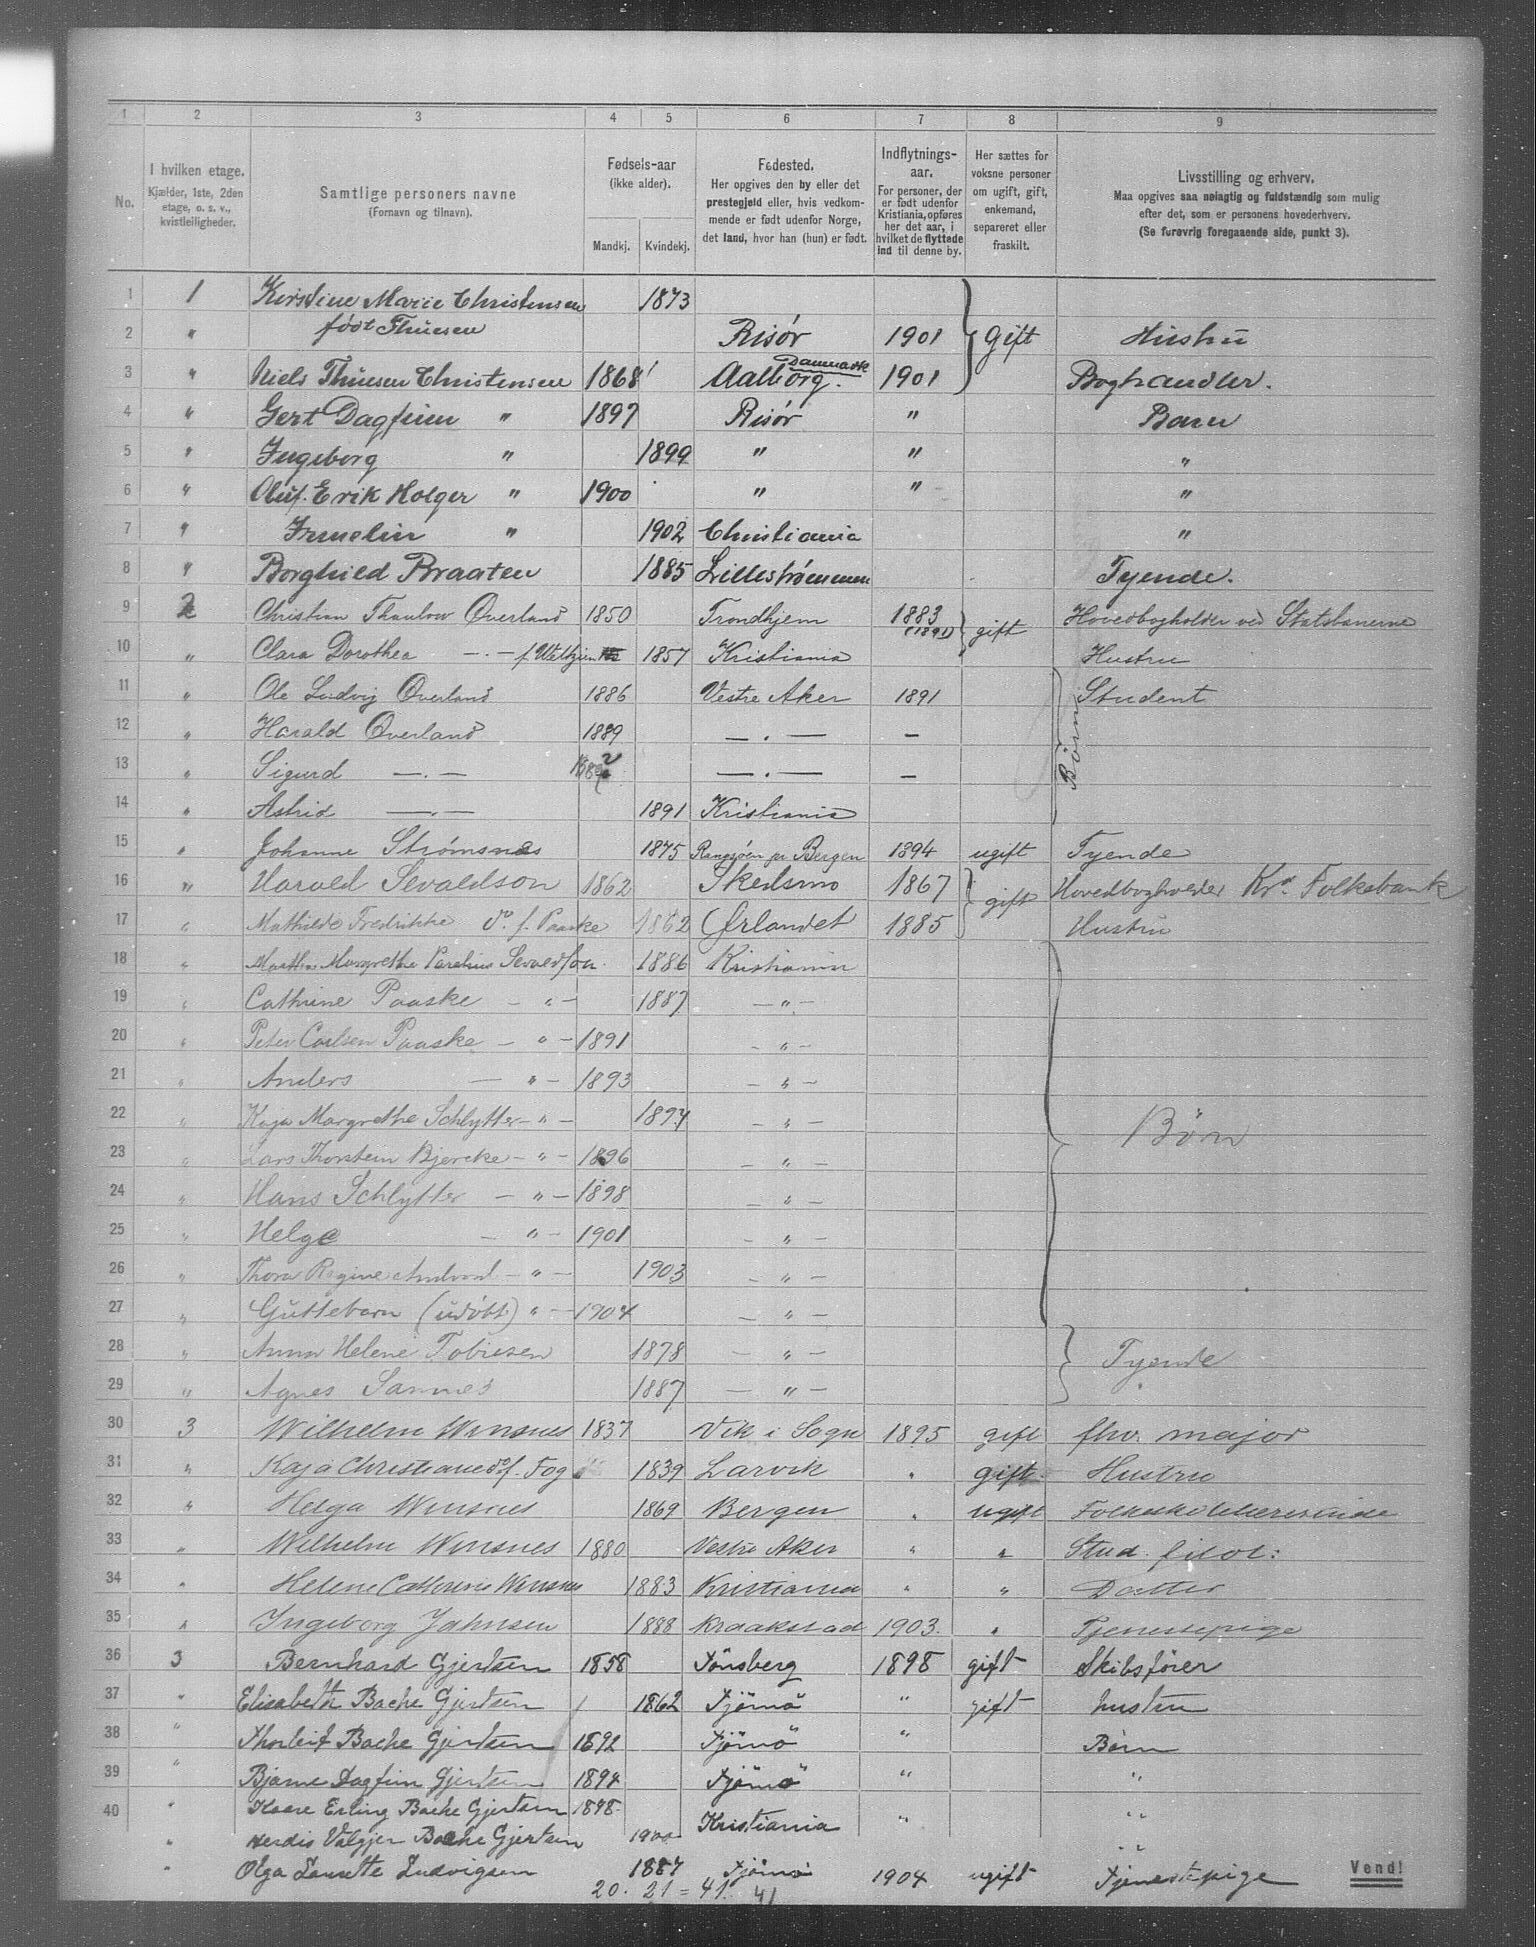 1 2 3 4 5 6 7 8 9
No.
I hvilken etage.
Kjælder, 1ste, 2den
etage, o. s. v.,
kvistleiligheder.
Samtlige personers navne
(Fornavn og tilnavn).
Fødsels-aar
(ikke alder).
Mandkj. Kvindekj.
Fødested.
Her opgives den by eller det
prestegjeld eller, hvis vedkom-
mende er født udenfor Norge,
det land, hvor han (hun) er født.
Indflytnings-
aar.
For personer, der
er født udenfor
Kristiania, opføres
her det aar, i
hvilket de flyttede
ind til denne by.
Her sættes for
voksne personer
om ugift, gift,
enkemand,
separeret eller
fraskilt.
Livsstilling og erhverv.
Maa opgives saa nøiagtig og fuldstændig som mulig
efter det, som er personens hovederhverv.
(Se forøvrig foregaaende side, punkt 3).
1 1 Kirstine Marie Christensen 1873
2 " født Thuesen Risør 1901 Gift Hustru
3 " Niels Thuesen Christensen 1868 Aalborg. Danmark 1901 Boghandler.
4 " Gert Dagfinn " 1897 Risør " Barn
5 " Ingeborg " 1899 " " "
6 " Oluf Erik Holger " 1900 " " "
7 " Irmelin " 1902 Christiania "
8 " Borghild Braaten 1885 Lillestrømmen Tyende.
9 2 Christian Thaulow Overland 1850 Trondhjem 1883 (1891) gift Hovedbogholder ved Statsbanerne
10 " Clara Dorothea —.— f. 1857 Kristiania Hustru
11 " Ole Ludvig Overland 1886 Vestre Aker 1891 Student
12 " Harald Overland 1889 —.— — Børn
13 " Sigurd —.— —.— —
14 " Astrid —.— 1891 Kristiania
15 " Johanne Strømsnæs 1875 pr Bergen 1894 ugift Tyende
16 " Harald Sevaldson 1862 Skedsmo 1867 gift Hovedbogholder Kra. Folkebank
17 " Mathilde Fredrikke do f. Paaske 1862 Ørlandet 1885 Hustru
18 " Margrethe Sevaldson 1886 Kristiania
19 " Cathrine Paaske — " — 1887 — " —
20 " Peter Carlsen Paaske — " — 1891 — " —
21 " Anders — " — 1893 — " —
22 " Kaja Margrethe Schlytter — " — 1894 — " — Børn
23 " Lars Thorstein Bjercke — " — 1896 — " —
24 " Hans Schlytter — " — 1898 — " —
25 " Helge — " — 1901 — " —
26 " Thora Regine — " — 1903 — " —
27 " Guttebarn (udøbt) " — 1904 — " —
28 " Anna Helene Tobiesen 1878 — " — Tyende
29 " Agnes Sannes 1887 — " — "
30 3 Wilhelm Winsnes 1837 Vik i Sogn 1895 gift fhv. major
31 " Kaja Christiane do f. Fog 1839 Larvik " gift Hustru
32 " Helga Winsnes 1869 Bergen " ugift Folkeskolelærerinde
33 " Wilhelm Winsnes 1880 Vestre Aker " " Stud. filol:
34 " Helene Cathrine Winsnes 1883 Kristiania " " Datter
35 " Ingeborg Jahnsen 1888 Kraakstad 1903. " Tjenestepige
36 3 Bernhard Gjertsen 1858 Tönsberg 1898 gift Skibsfører
37 " Elisabeth Bache Gjertsen 1862 Tjömö " gift hustru
38 " Thorleif Bache Gjertsen 1892 Tjömö " Børn
39 " Bjarne Dagfinn Gjertsen 1894 Tjömö " "
40 " Kaare Erling Bache Gjertsen 1898. Kristiania " "
" Herdis Valgjer Bache Gjertsen 1900 "
" Olga Laurette Ludvigsen 1887 Tjömö 1904 ugift Tjenestepige
Vend!
20. 21 = 41. 41